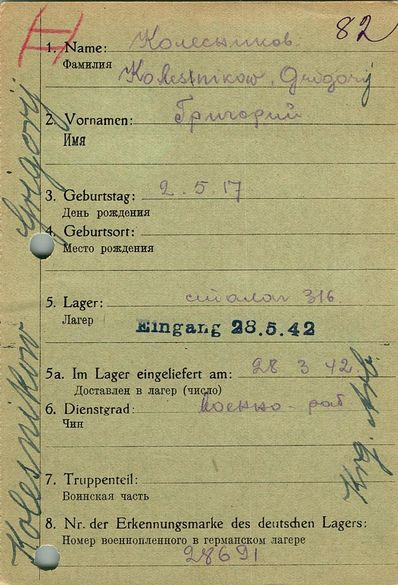 82
II
1. Name: Колесников
Фамилия
Kolestnikow, Grėgory
2. Vornamen: Григорий
Имя
3. Geburtstag: 2.5.17
День рождения
4. Geburtsort:
Место рождения
5. Lager: сталаг 316
Лагер
Eingang 28.5.42
5a. Im Lager eingeliefert am: 28 3 42.
Доставлен в лагер (число)
6. Dienstgrad: Военно-раб
Чин
7. Truppenteil:
Воинская часть
8. Nr. der Erkennungsmarke des deutschen Lagers:
Номер военнопленного в германском лагере
28691
Kolesnikow Grigorij
Krg. Arb.